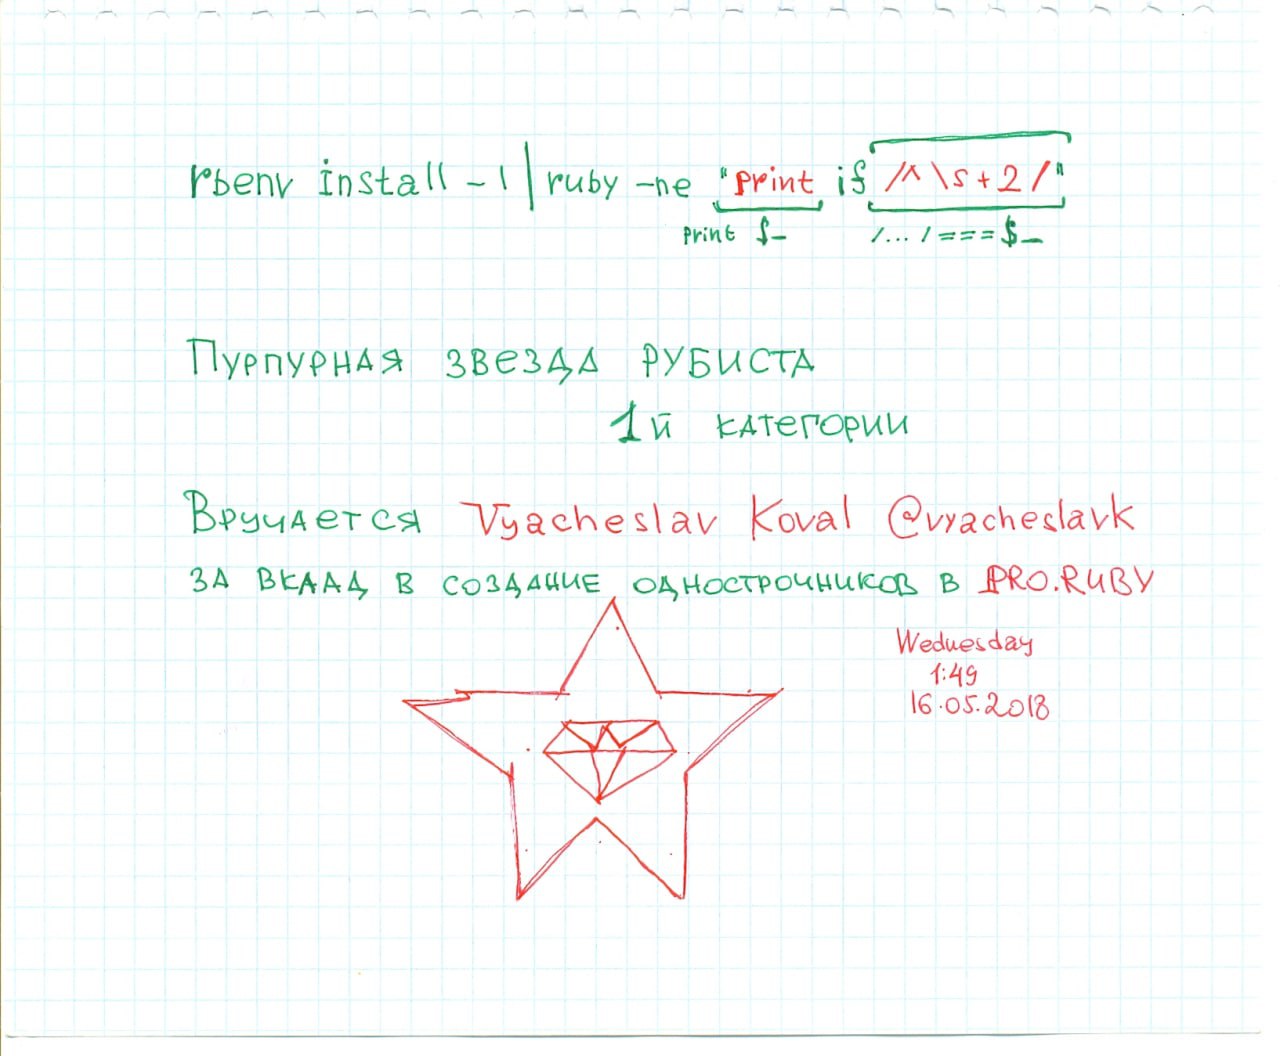 rbenv install -l | ruby -ne "print if /^\s+2/"
print $_ /.../ === $_
Пурпурная звезда рубиста
1й категории
Вручается Vyacheslav Koval @vyacheslavk
за вклад в создание однострочников в PRO.RUBY
Wednesday
1:49
16.05.2018